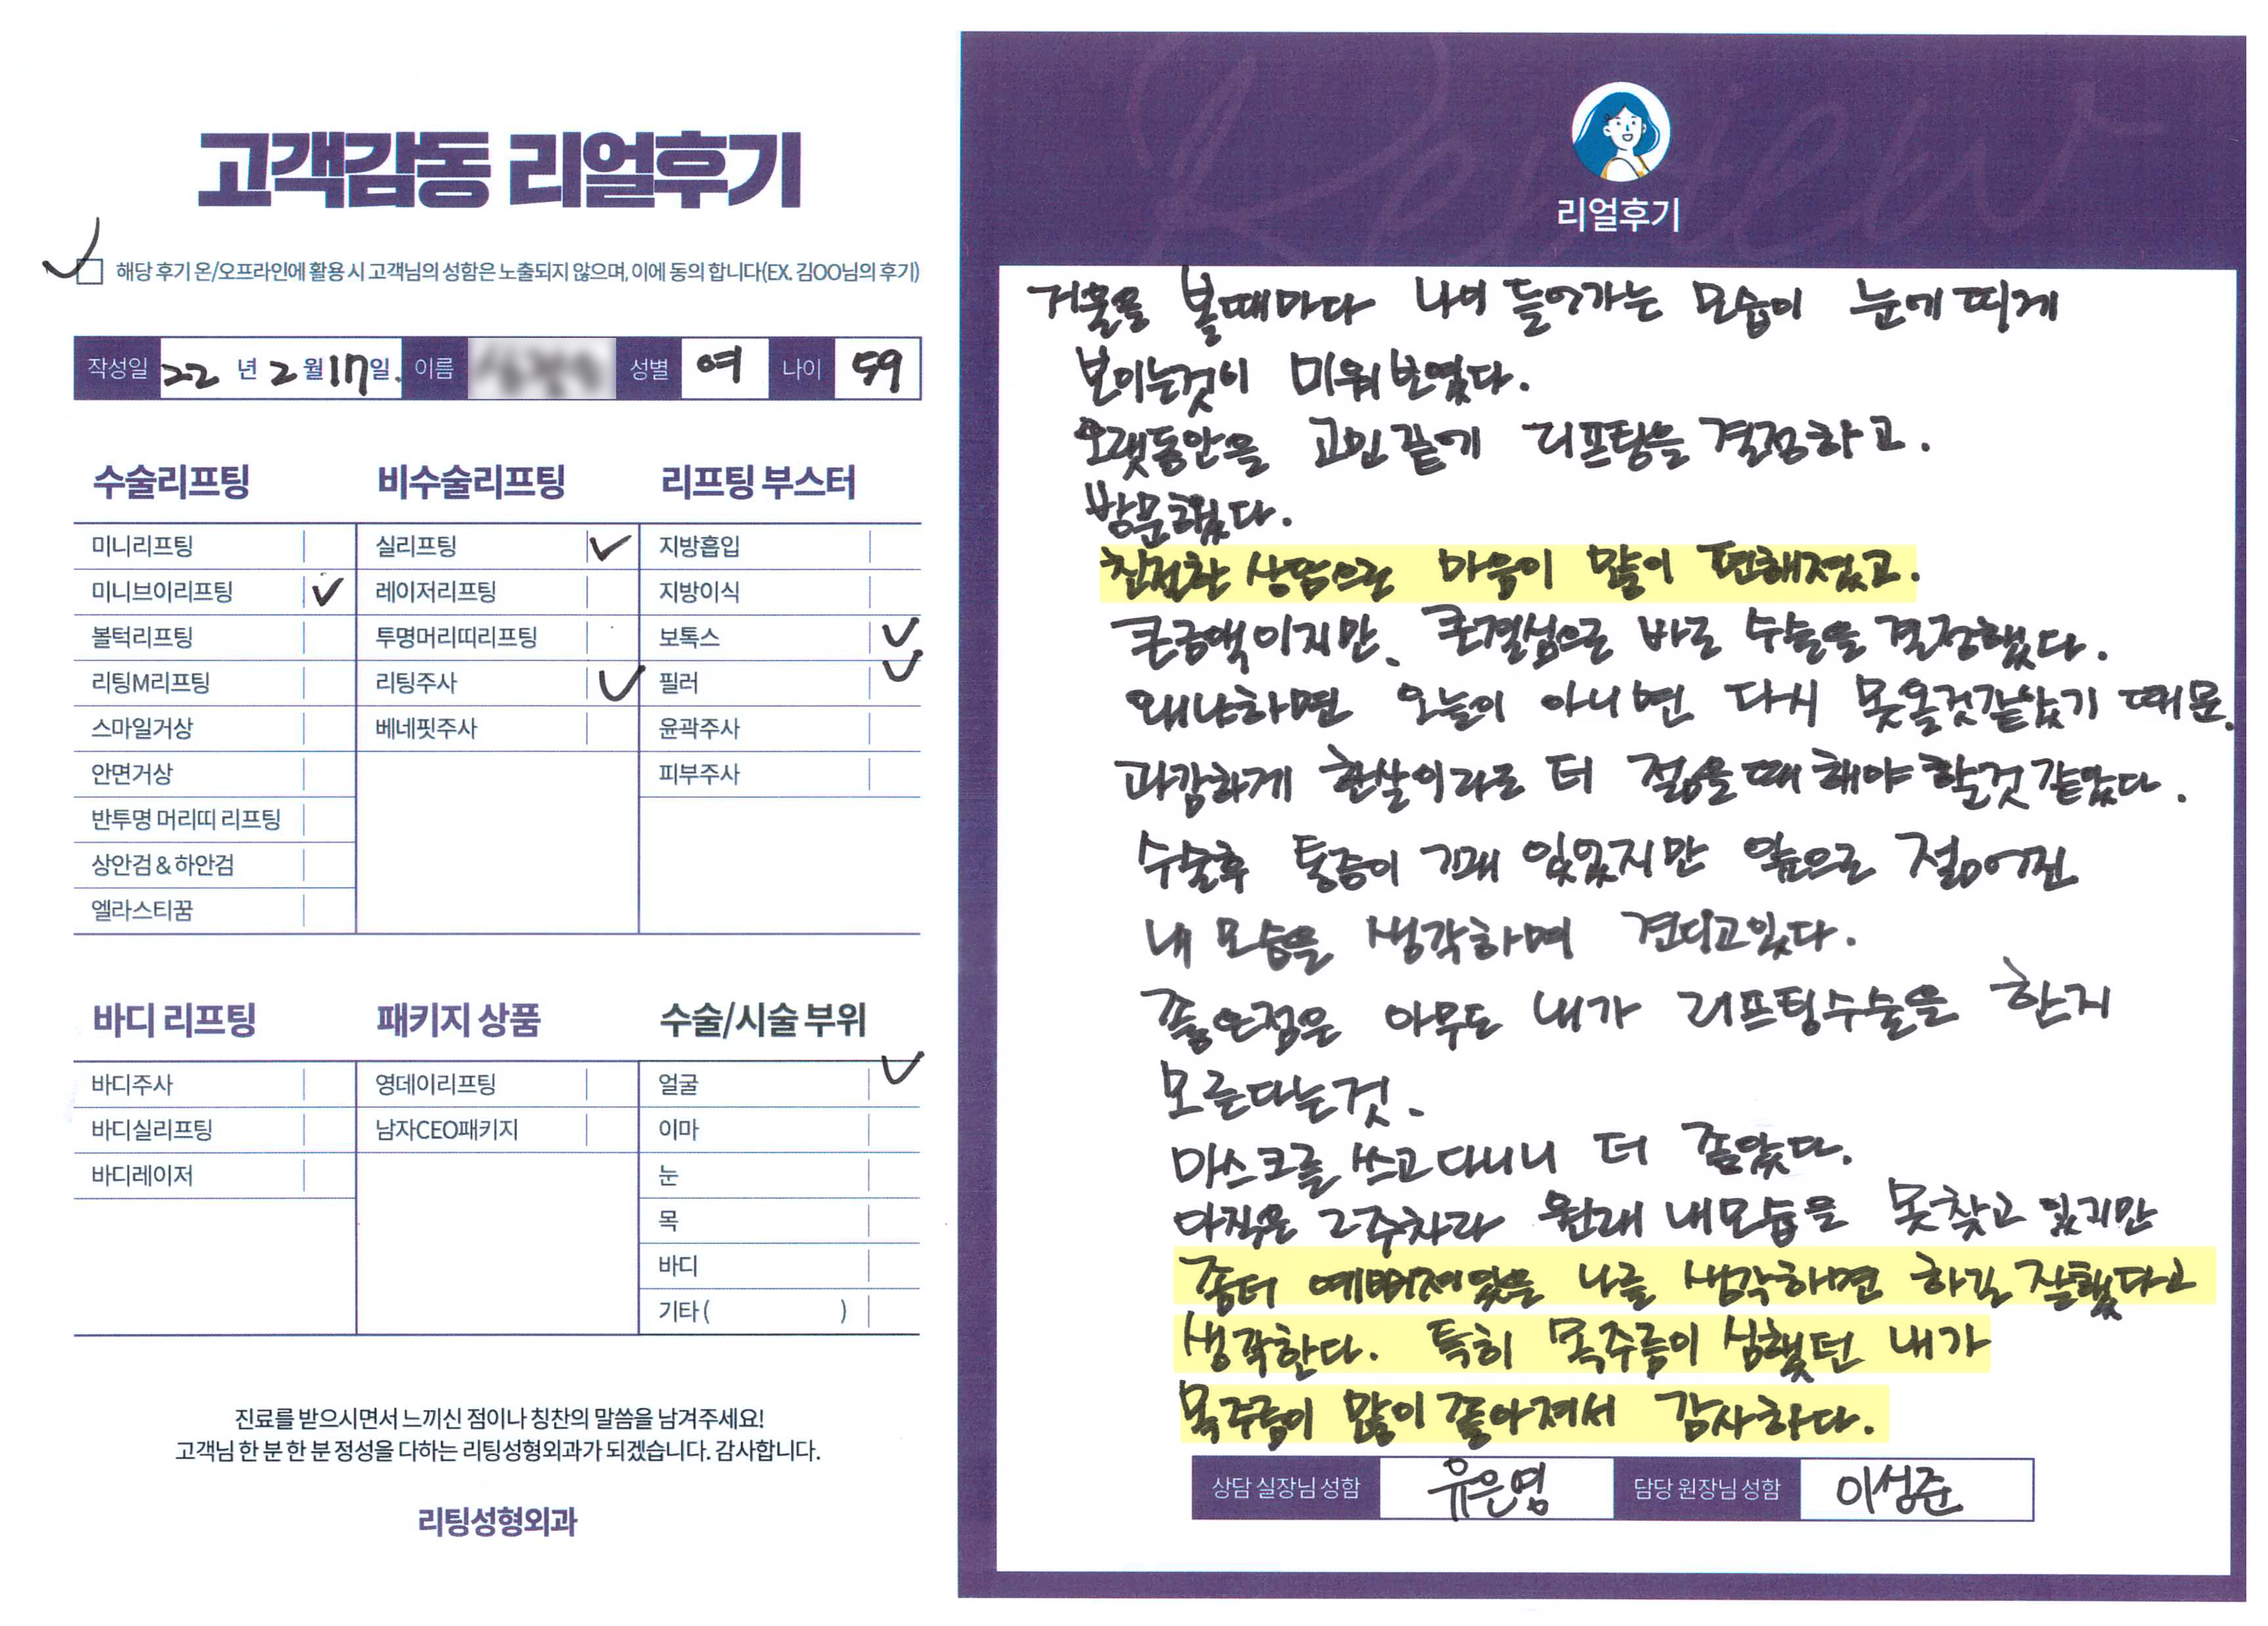 고객감동 리얼후기
해당 후기 온/오프라인에 활용 시 고객님의 성함은 노출되지 않으며, 이에 동의 합니다(EX. 김OO님의 후기)
작성일 22년 2월 17일. 이름 성별 여 나이 59
수술리프팅 비수술리프팅 리프팅 부스터
미니리프팅 실리프팅 지방흡입
미니브이리프팅 레이저리프팅 지방이식
볼턱리프팅 투명머리띠리프팅 보톡스
리팅M리프팅 리팅주사 필러
스마일거상 베네핏주사 윤곽주사
안면거상 피부주사
반투명 머리띠 리프팅
상안검 & 하안검
엘라스티꿈
바디 리프팅 패키지 상품 수술/시술 부위
바디주사 영데이리프팅 얼굴
바디실리프팅 남자CEO패키지 이마
바디레이저 눈
목
바디
기타 ( )
진료를 받으시면서 느끼신 점이나 칭찬의 말씀을 남겨주세요!
고객님 한 분 한 분 정성을 다하는 리팅성형외과가 되겠습니다. 감사합니다.
리팅성형외과
Review
리얼후기
거울을 볼때마다 나이 들어가는 모습이 눈에 띄게
보이는것이 미워보였다.
오랫동안을 고민끝에 리프팅을 결정하고.
방문했다.
친절한 상담으로 마음이 많이 편해졌고.
큰금액이지만. 큰결심으로 바로 수술을 결정했다.
왜냐하면 오늘이 아니면 다시 못올것같았기 때문.
과감하게 한살이라도 더 젊을때 해야 할것 같았다.
수술후 통증이 꽤 있었지만 앞으로 젊어진
내 모습을 생각하며 견디고있다.
좋은점은 아무도 내가 리프팅수술을 한지
모른다는것.
마스크를 쓰고다니니 더 좋았다.
아직은 2주차라 원래 내모습을 못찾고 있지만
좀더 예뻐져있을 나를 생각하면 하길 잘했다고
생각한다. 특히 목주름이 심했던 내가
목주름이 많이 좋아져서 감사하다.
상담 실장님 성함 유은영 담당 원장님 성함 이성준